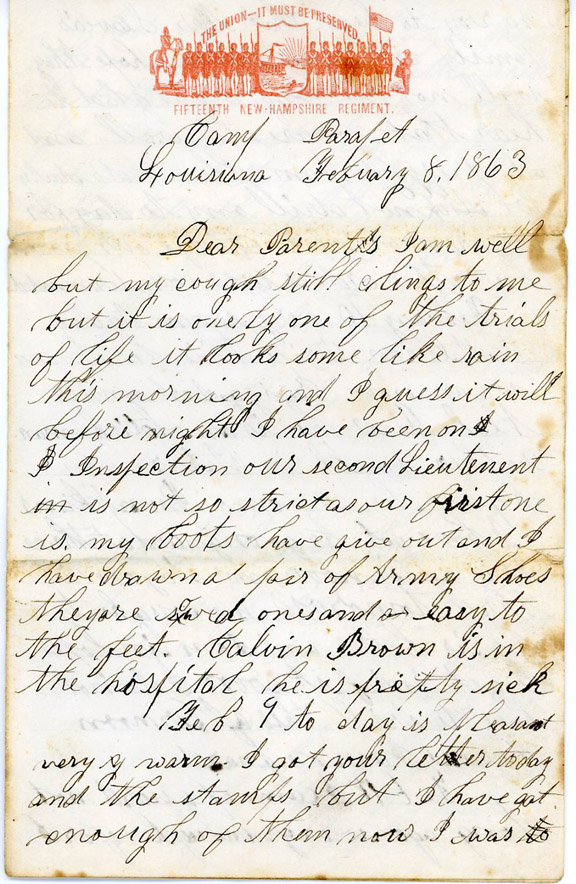 THE UNION—IT MUST BE PRESERVED.
FIFTEENTH NEW-HAMPSHIRE REGIMENT.
Camp Parapet
Louisiana Febuary 8, 1863
Dear Parents I am well
but my cough still clings to me
but it is onely one of the trials
of life it looks some like rain
this morning and I guess it will
before night. I have been on
I Inspection our second Lieutenent
in is not so strict as our first one
is. my boots have give out and I
have drawn a pair of Army Shoes
they are ones and easy to
the feet. Calvin Brown is in
the hospital he is pretty sick
Feb 9 to day is pleasant
very & warm I got your letter to day
and the stamps but I have got
enough of them now I was to